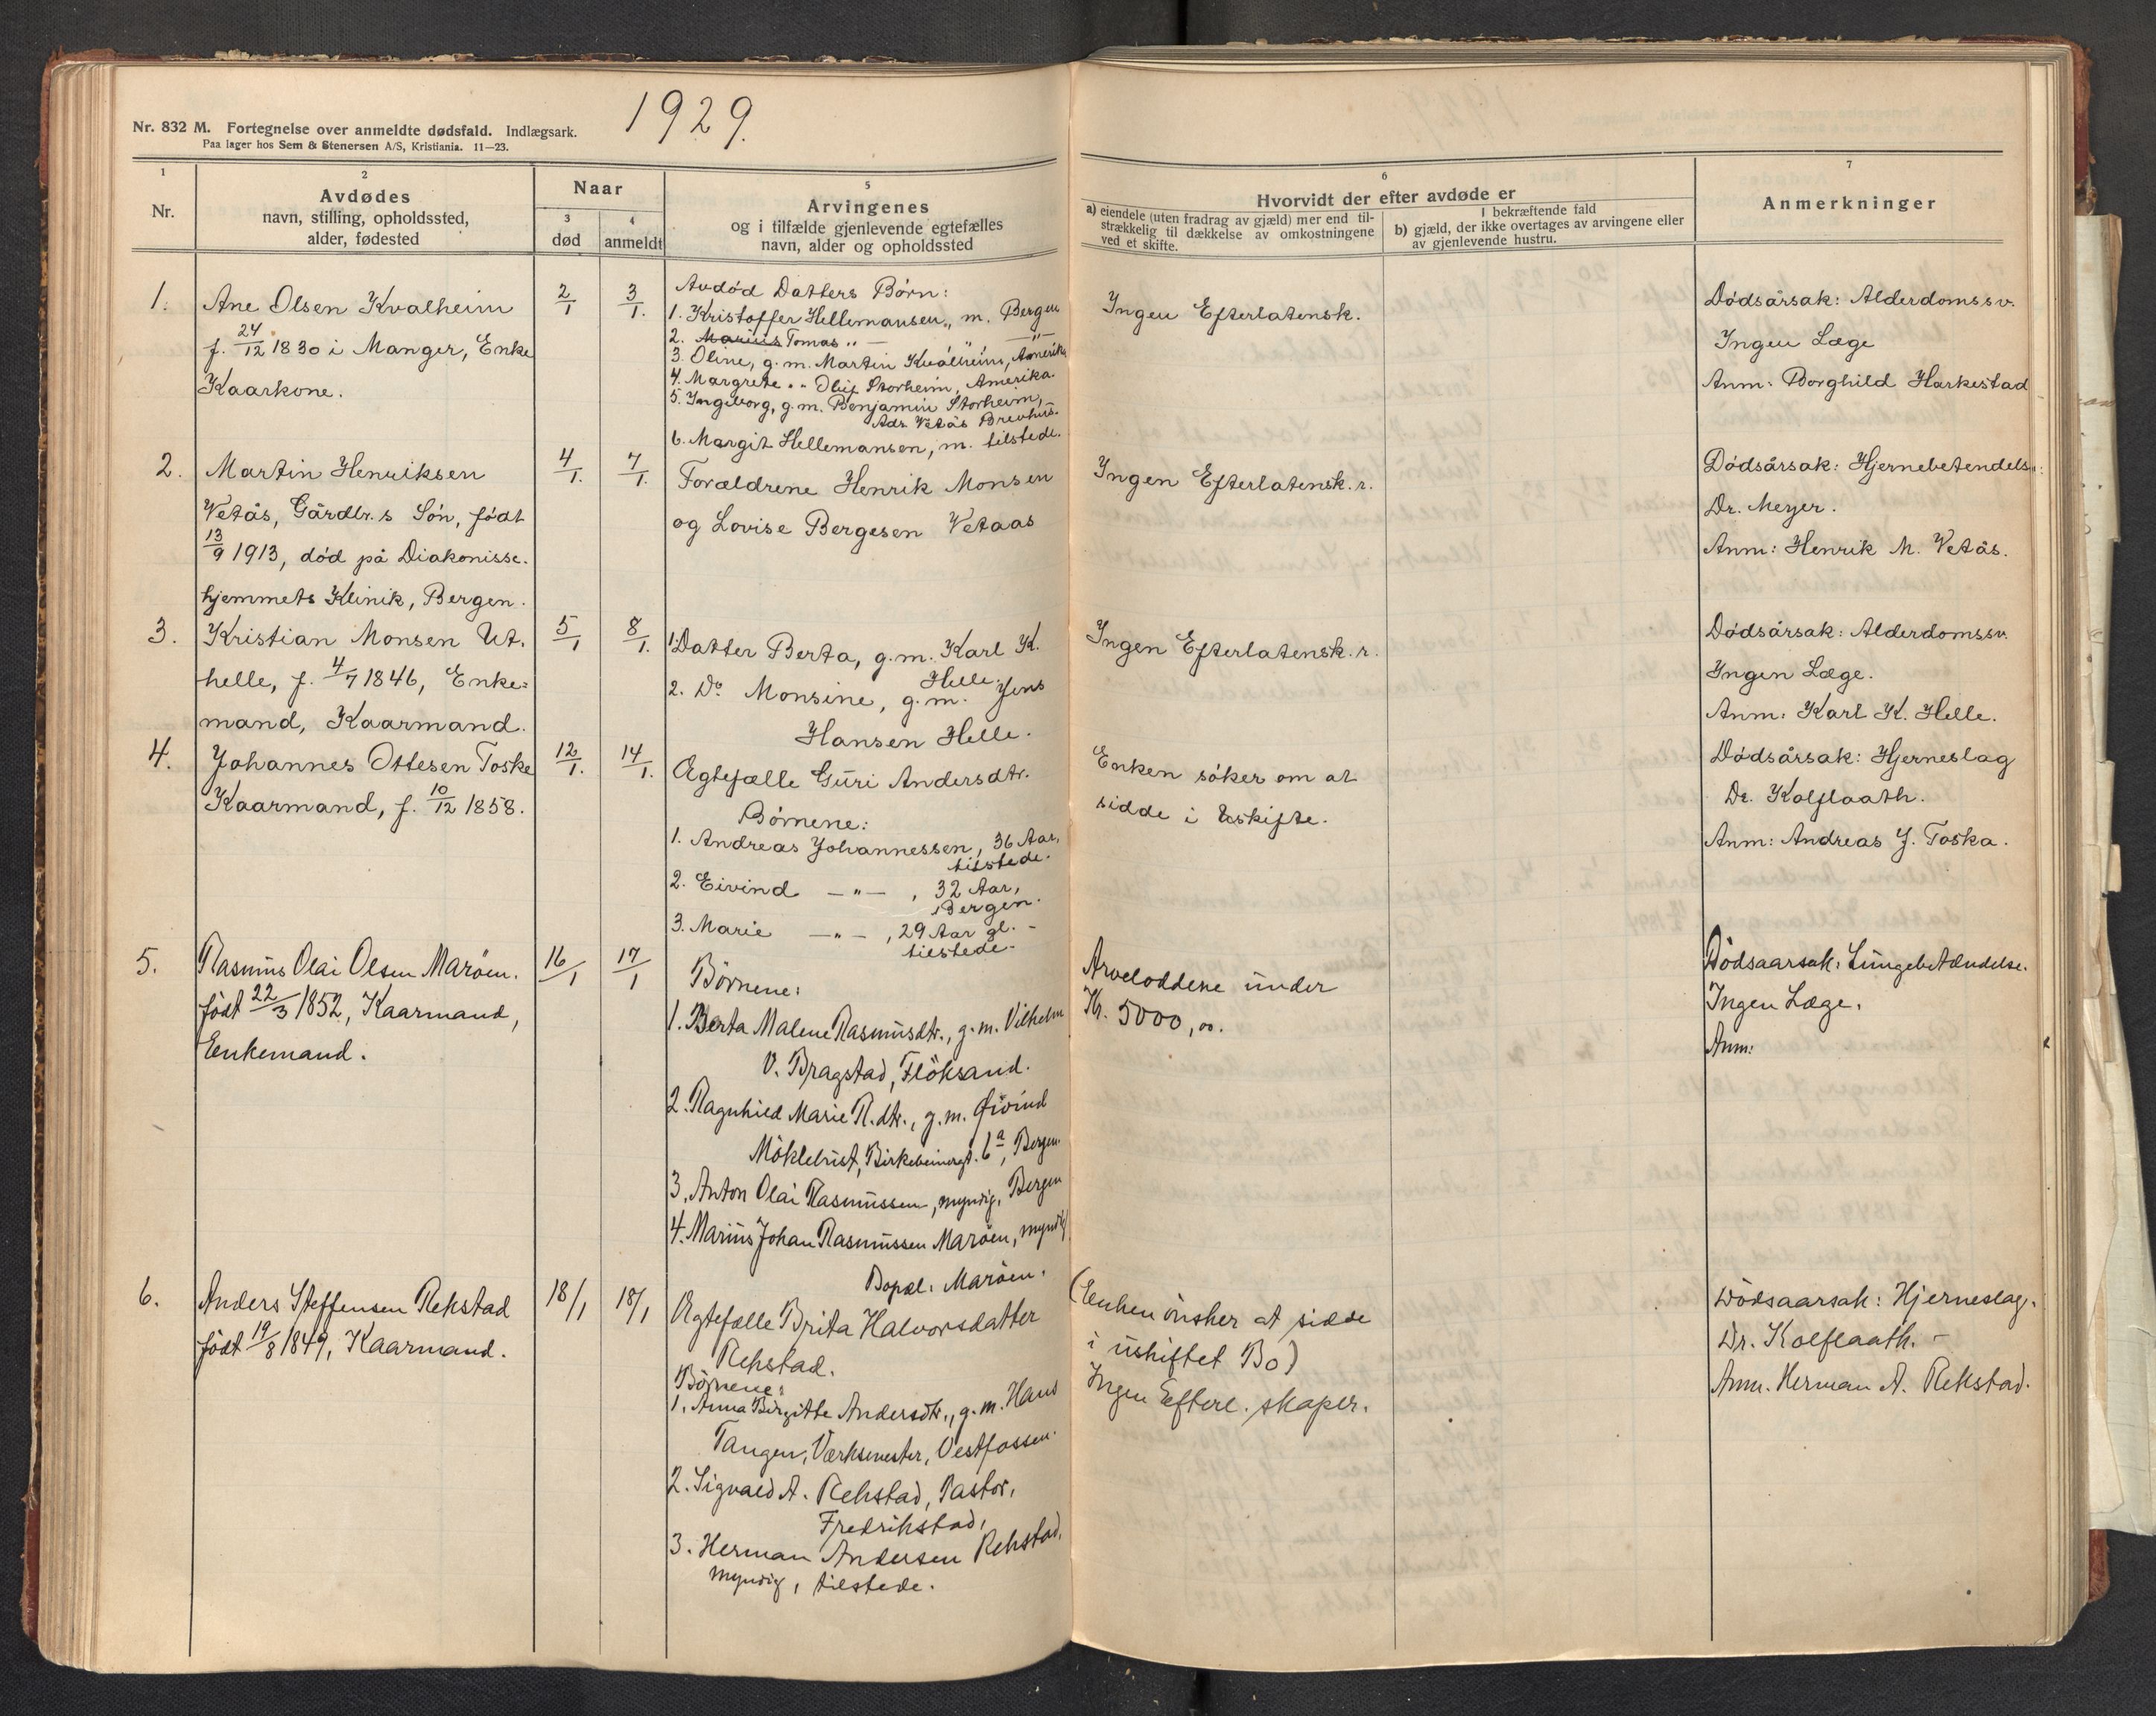 1929.
Nr. 832 M. Fortegnelse over anmeldte dødsfald. Indlægsark.
Paa lager hos Sem & Stenersen A/S, Kristiania. 11—23.
1
Nr.
2
Avdødes
navn, stilling, opholdssted,
alder, fødested
Naar
3
død
4
anmeldt
5
Arvingenes
og i tilfælde gjenlevende egtefælles
navn, alder og opholdssted
6
Hvorvidt der efter avdøde er
a) eiendele (uten fradrag av gjæld) mer end til-
strækkelig til dækkelse av omkostningene
ved et skifte.
I bekræftende fald
b) gjæld, der ikke overtages av arvingene eller
av gjenlevende hustru.
7
Anmerkninger
1.
Ane Olsen Kvalheim
f. 24/12 1830 i Manger, Enke
Kaarkone.
2/1
3/1.
Avdöd Datters Börn:
1. Kristoffer Hellemansen, m. Bergen
2. Marius Tomas " — " —"—
3. Oline, g.m. Martin Kvalheim, Amerika
4. Margrete " " Oluf Storheim, Amerika.
5. Ingeborg, g.m. Benjamin Storheim,
Adr. Vetås Brevhus.
6. Margit Hellemansen, m. tilstede.
Ingen Efterlatensk.
Dödsårsak: Alderdomssv.
Ingen Læge
Anm: Borghild Harkestad
2.
Martin Henriksen
Vetås, Gårdbr.s Sön, född
13/9 1913, död på Diakonisse-
hjemmets Klinik, Bergen.
4/1.
7/1.
Forældrene Henrik Monsen
og Lovise Bergesen Vetaas
Ingen Efterlatensk.r.
Dödsårsak: Hjernebetendelse
Dr. Meyer.
Anm: Henrik M. Vetås.
3.
Kristian Monsen Ut-
helle, f. 4/7 1846, Enke=
mand, Kaarmand.
5/1
8/1.
1. Datter Berta, g.m. Karl K.
Helle.
2. Do Monsine, g.m. Jens
Hansen Helle.
Ingen Efterlatensk.r.
Dödsårsak: Alderdomssv.
Ingen Læge.
Anm: Karl K. Helle.
4.
Johannes Ottesen Toske
Kaarmand, f. 10/12 1858.
12/1.
14/1.
Ægtefælle Guri Andersdtr.
Børnene:
1. Andreas Johannessen, 36 Aar,
tilstede.
2. Eivind —"— , 32 Aar,
Bergen.
3. Marie —"— , 29 Aar gl. -
tilstede.
Enken söker om at
sidde i Uskifte.
Dödsårsak: Hjerneslag
Dr. Kolflaath.
Anm: Andreas J. Toska.
5.
Rasmus Olai Olsen Maröen.
födt 22/3 1852, Kaarmand,
Enkemand.
16/1
17/1
Börnene:
1. Berta Malene Rasmusdtr., g.m. Vilhelm
V. Bragstad, Flöksand.
2. Ragnhild Marie R.dtr., g.m. Øivind
Möklebust, Birkebeinergt. 6a, Bergen.
3. Anton Olai Rasmussen, myndig, Bergen
4. Marius Johan Rasmussen Maröen, myndig
Bopæl: Maröen.
Arveloddene under
Kr. 5000,00.
Dödsaarsak: Lungebetændelse.
Ingen Læge.
Anm:
6.
Anders Steffensen Rekstad
födt 19/8 1849, Kaarmand.
18/1
18/1
Ægtefælle Brita Halvorsdatter
Rekstad.
Börnene:
1. Anna Birgitte Andersdtr., g.m. Hans
Tangen, Værksmester, Vestfossen.
2. Sigvald A. Rekstad, Pastor,
Fredrikstad,
3. Herman Andersen Rekstad,
myndig, tilstede.
(Enken önsker at sidde
i uskiftet Bo)
Ingen Efterl.skaper.
Dödsaarsak: Hjerneslag.
Dr. Kolflaath. -
Anm. Herman A. Rekstad.